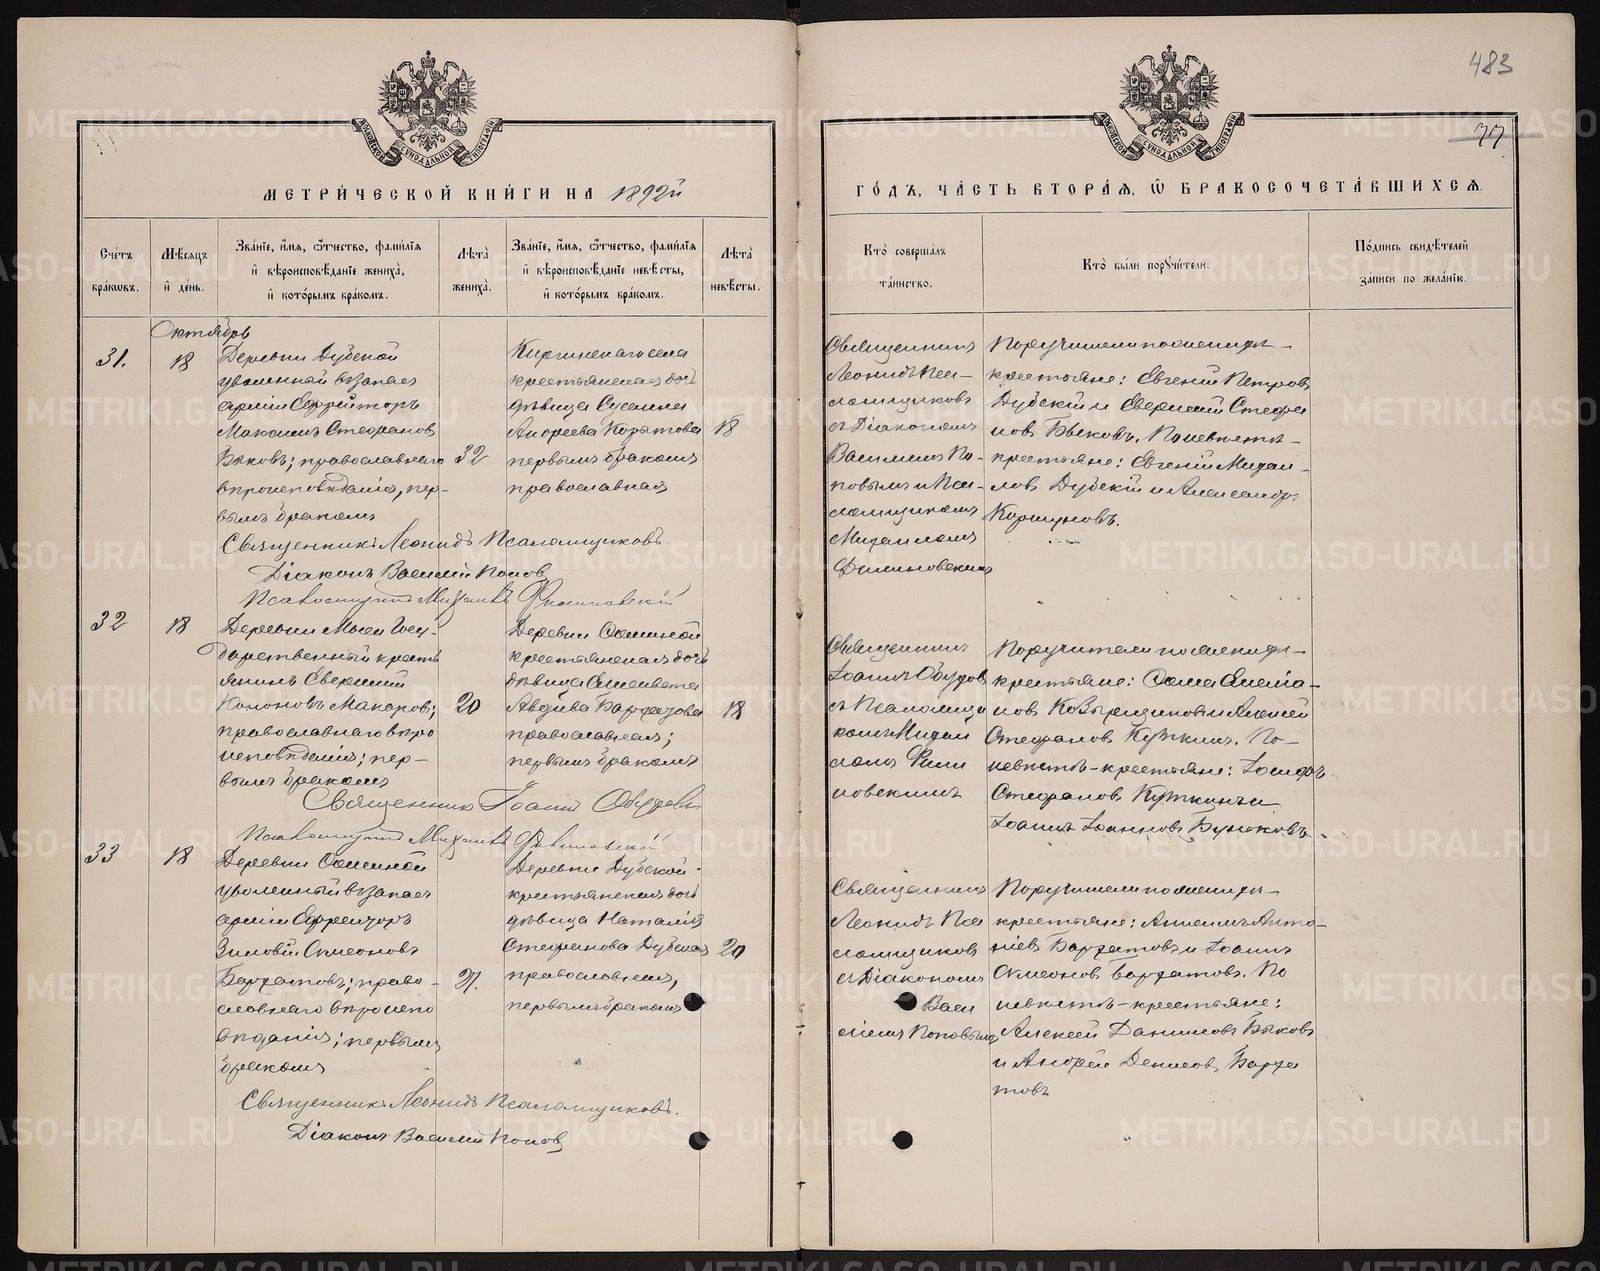 483
77
МЕТРИЧЕСКОЙ КНИГИ НА 1892й
ГОДЪ, ЧАСТЬ ВТОРАЯ, Ѽ БРАКОСОЧЕТАВШИХСЯ.
Счетъ браковъ.
Мѣсяцъ и день.
Званіе, имя, отчество, фамилія и вѣроисповѣданіе жениха, и которымъ бракомъ.
Лѣта жениха.
Званіе, имя, отчество, фамилія и вѣроисповѣданіе невѣсты, и которымъ бракомъ.
Лѣта невѣсты.
Кто совершалъ таинство.
Кто были поручители.
Подпись свидѣтелей записи по желанію.
Октябрь
31.
18
Деревни Дубской
уволенный въ запасъ
арміи Ефрейторъ
Максимъ Стефановъ
Быковъ; православнаго
вѣроисповѣданія, пер-
вымъ бракомъ
32
Киргинскаго села
крестьянская дочь
дѣвица
Андреева Корытова
первымъ бракомъ
православная
18
Священникъ
Леонидъ Пса-
ломщиковъ
съ Діакономъ
Василіемъ По-
повымъ и Пса-
ломщикомъ
Михаиломъ
Поручители по женихѣ -
крестьяне: Евгеній Петровъ
Дубскій и Евгеній Стефа
новъ Быковъ. По невѣстѣ -
крестьяне: Евгеній Михаи-
ловъ Дубскій и Александръ
Коршуновъ.
Священникъ Леонидъ Псаломщиковъ.
Діаконъ Василій Поповъ
Псаломщикъ Михаилъ
32
18
Деревни Мысы Госу-
дарственный кресть
янинъ
Кононовъ Макаровъ;
православнаго вѣро
исповѣданія; пер-
вымъ бракомъ
20
Деревни Осминой
крестьянская дочь
дѣвица Елисавета
православная;
первымъ бракомъ
18
Священникъ
Іоаннъ
съ Псаломщи
комъ Михаи
ломъ
Поручители по женихѣ -
крестьяне:
Стефановъ Куткинъ. По-
невѣстѣ - крестьяне: Іосифъ
Стефановъ Куткинъ и
Іоаннъ Іоанновъ Буньковъ.
Священникъ Іоаннъ
Псаломщикъ Михаилъ
33
18
Деревни Осминой
уволенный въ запасъ
арміи Ефрейторъ
Зиновій Симеоновъ
православнаго вѣроиспо
вѣданія; первымъ
бракомъ
27.
Деревни Дубской
крестьянская дочь
дѣвица Наталія
Стефанова Дубская
православная,
первымъ бракомъ
20
Священникъ
Леонидъ Пса
ломщиковъ
съ Діакономъ
Васи
ліемъ Поповымъ
Поручители по женихѣ -
крестьяне:
Симеоновъ По
невѣстѣ - крестьяне:
Алексѣй Даниловъ Быковъ
и Андрей Денисовъ
Священникъ Леонидъ Псаломщиковъ.
Діаконъ Василій Поповъ